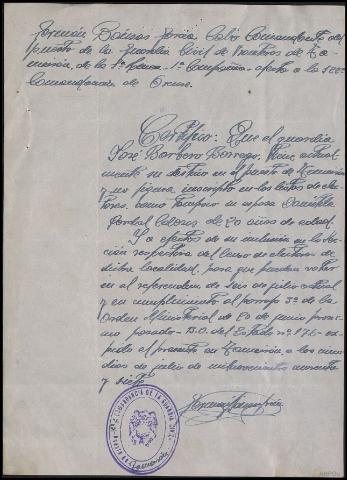 Fermín Bouzas García Cabo Comandante del
puesto de la Guardia Civil de Fronteras de
de la Compañia afecto a la
Comandancia de Orense.
Certifico: Que el guardia
José Borrego, tiene actual-
mente su destino en el puesto de
y no figura inscripto en las listas de elec-
tores, como tampoco su esposa Daniela
de 20 años de edad.
Y a efectos de su inclusión en la Sec-
ción respectiva del Censo de electores de
dicha Localidad, para que puedan votar
en el referendum de seis de julio actual
y en cumplimiento al párrafo 3º de la
Orden Ministerial de 20 de junio próxi-
mo pasado B.O. del Estado nº 175 ex-
pido el presente en a los cinco
dias de julio de mil novecientos cuarenta
y siete
COMANDANCIA DE LA GUARDIA CIVIL
AHPOU